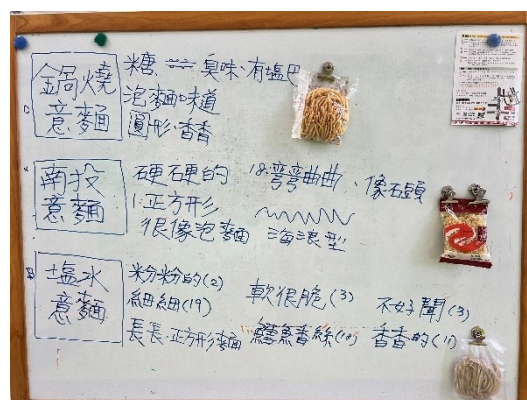 鍋燒
意麵
糖 臭味、有塩巴
泡麵味道
圓形、香香
南投
意麵
硬硬的 彎彎曲曲、像石頭
正方形
很像泡麵 海浪型
塩水
意麵
粉粉的(2)
細細(19) 軟很脆(3) 不好聞(3)
長長、正方形麵 鱈魚香絲(10) 香香的(11)